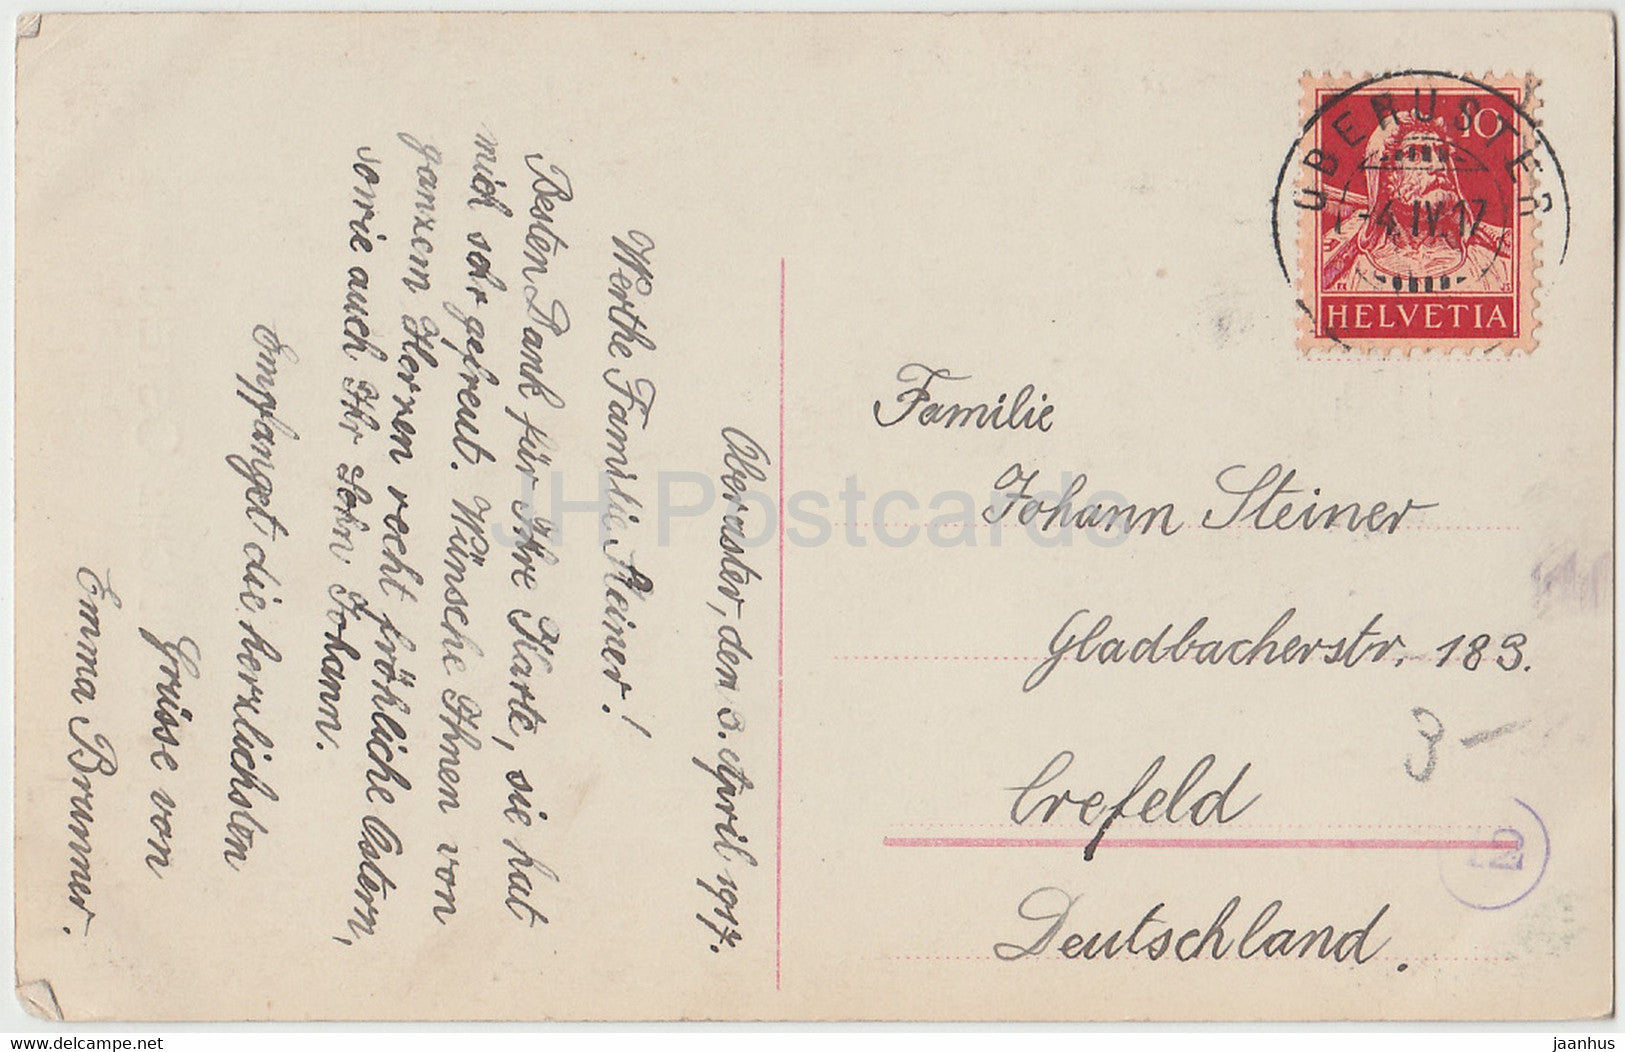 Oberuster, den 3. April 1917.
Werthe Familie Steiner!
Besten Dank für Ihre Karte, sie hat
mich sehr gefreut. Wünsche Ihnen von
ganzem Herzen recht fröhliche Ostern,
sowie auch Ihr Sohn Johann.
Empfanget die herzlichsten
Grüsse von
Emma Brunner.
10
HELVETIA
OBERUSTER
-4.IV.17
Familie
Johann Steiner
Gladbacherstr. 183.
Crefeld
Deutschland.
3 -
JH Postcards
www.delcampe.net
jaanhus